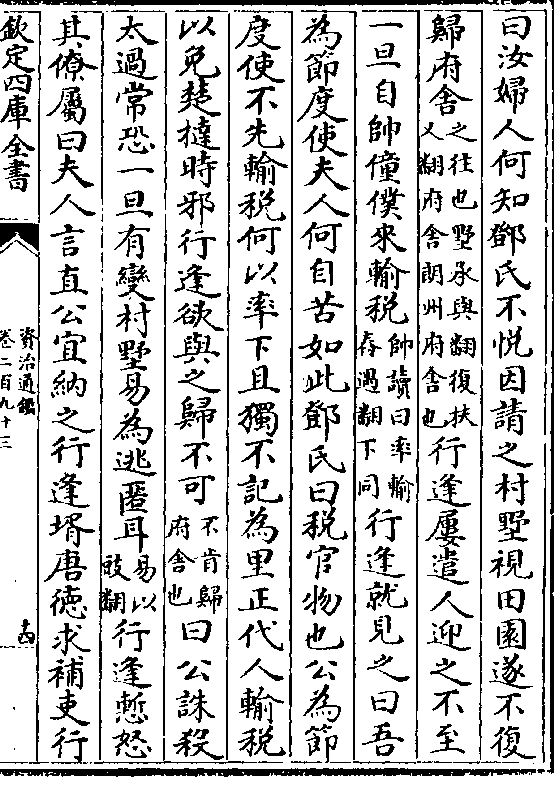 曰汝婦人何知鄧氏不悦因請之村墅視田園遂不復
歸府舍之往也墅承與翻復扶又翻府舍朗州府舍也行逢屢遣人迎之不至
一旦自帥僮僕來輸税帥讀曰率輸春遇翻下同行逢就見之曰吾
為節度使夫人何自苦如此鄧氏曰税官物也公為節
度使不先輸税何以率下且獨不記為里正代人輸税
以免楚撻時邪行逢欲與之歸不可不肯歸府舍也曰公誅殺
太過常恐一旦有變村墅易為逃匿耳易以豉翻行逢慙怒
其僚屬曰夫人言直公宜納之行逢壻唐徳求補吏行
欽定四庫全書
資治通鑑
卷二百九十三
十四